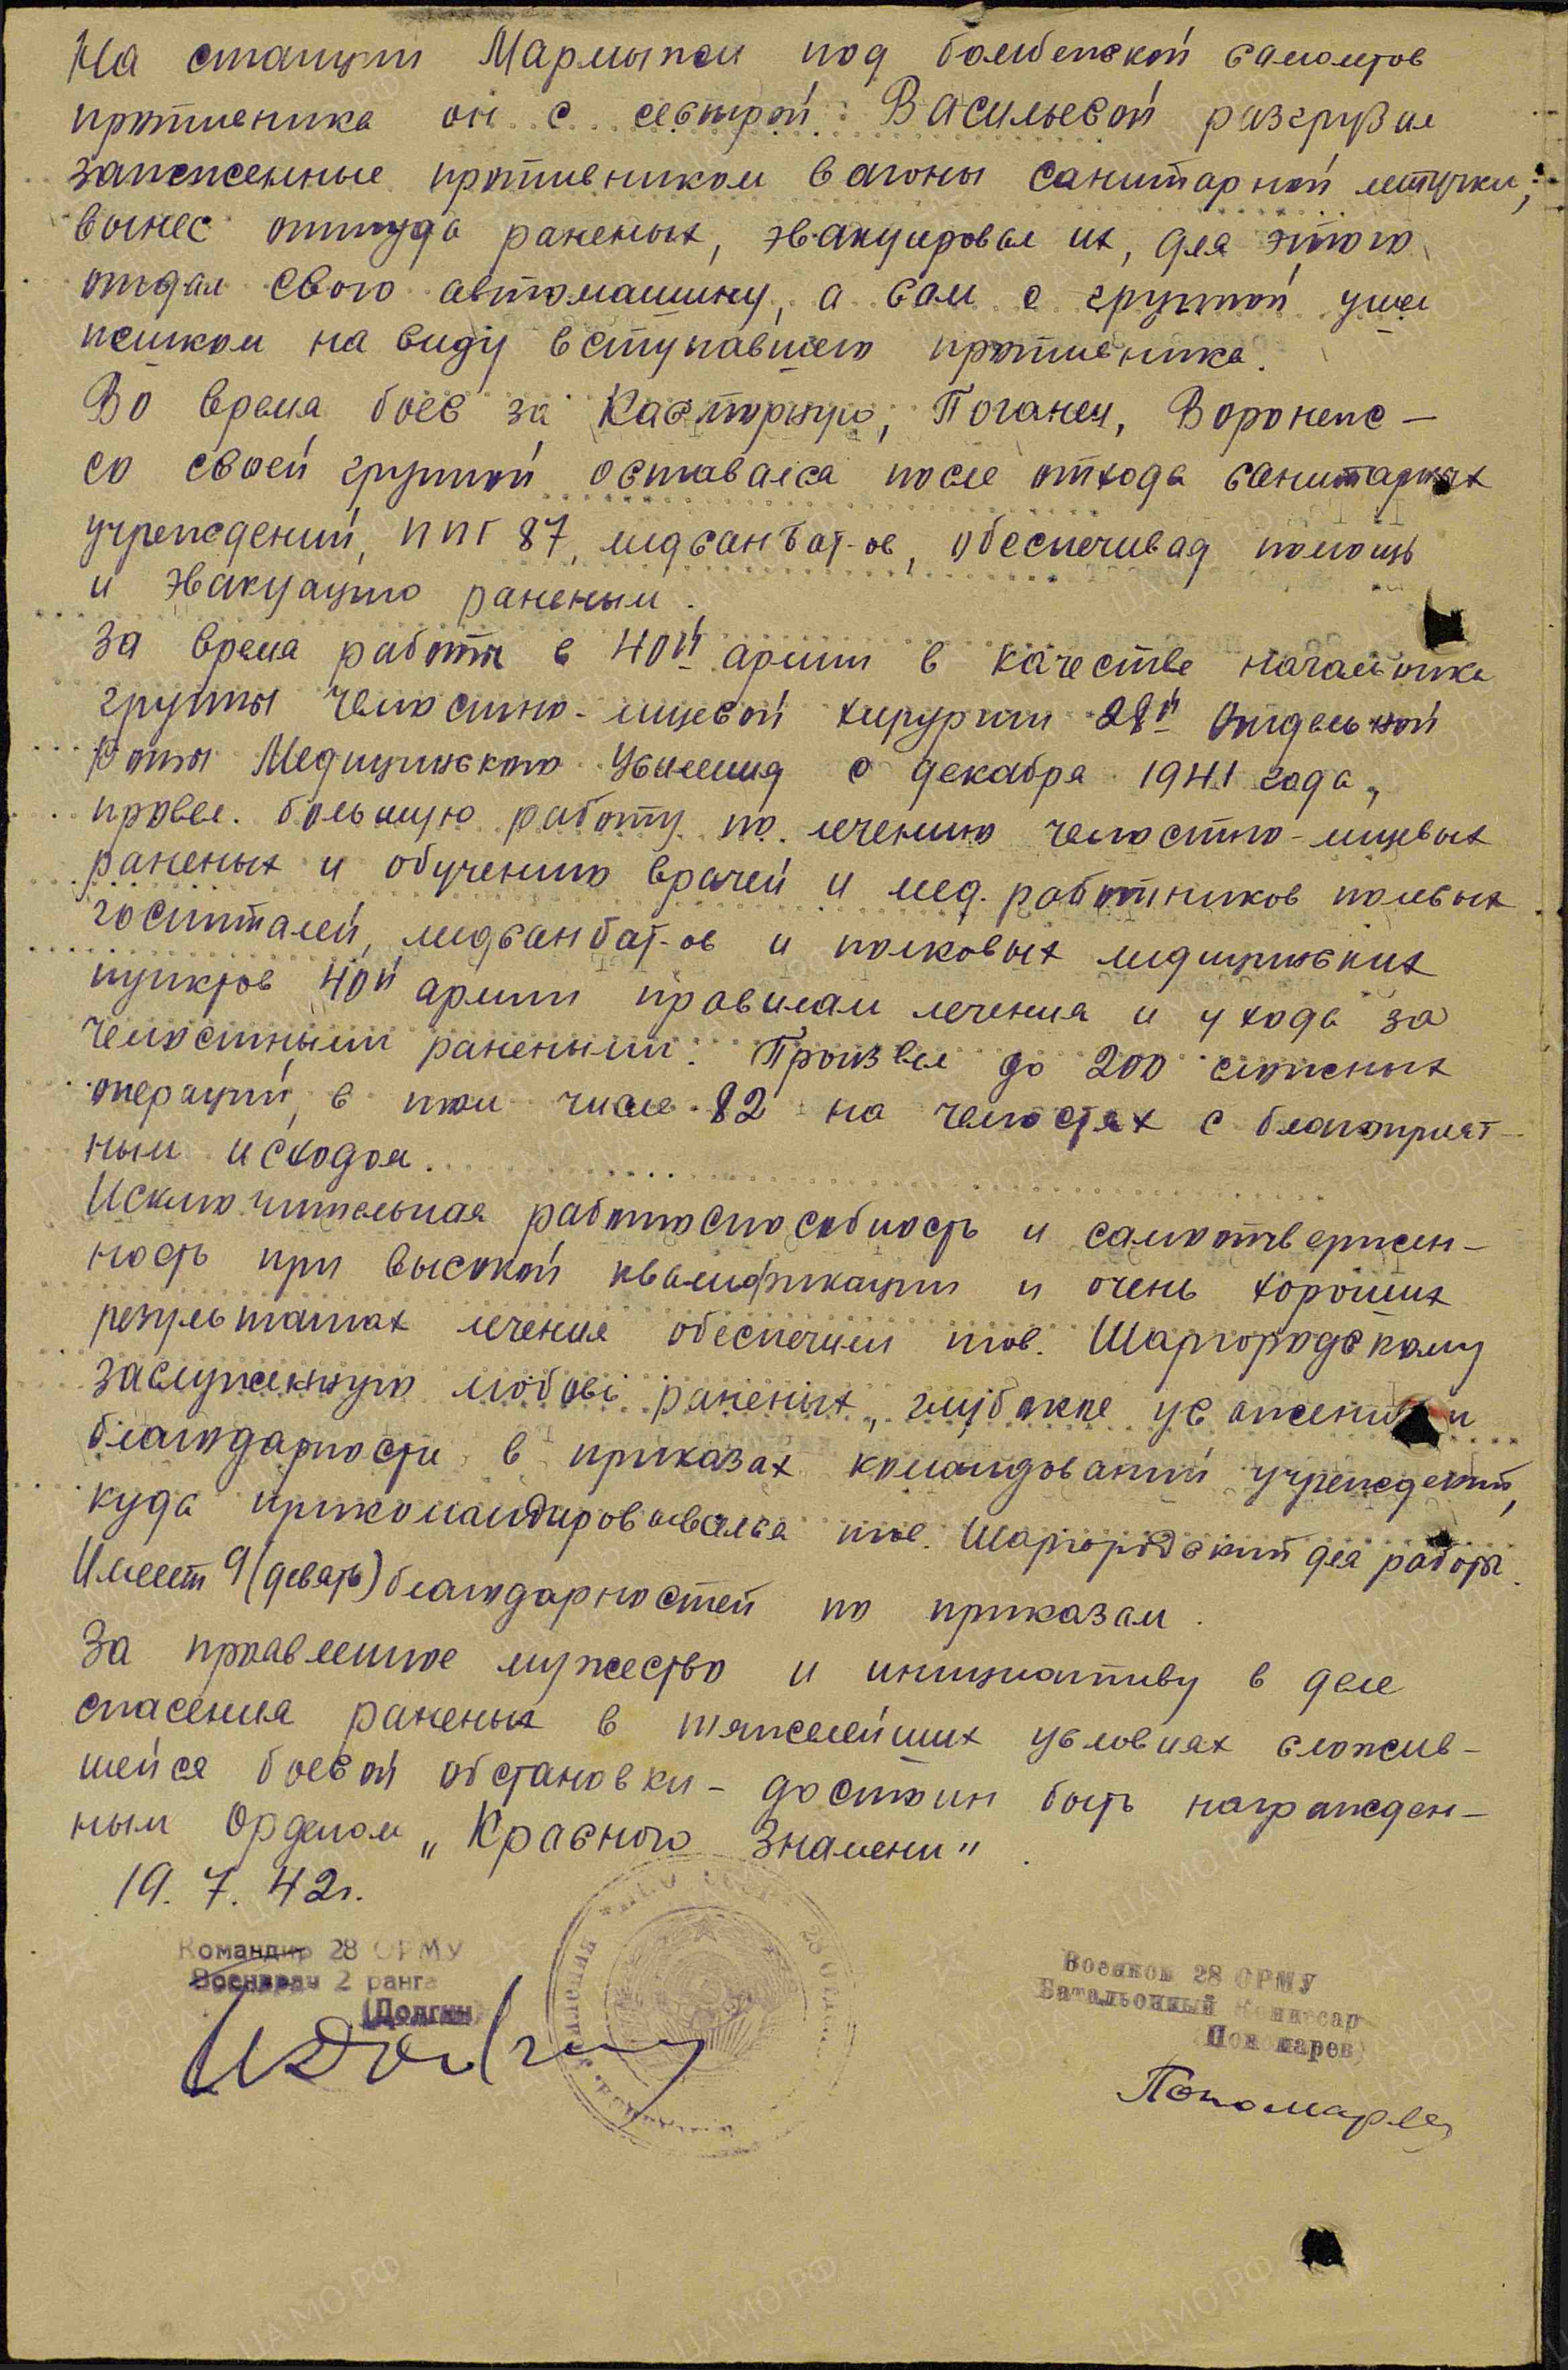 На станции Мармыжи под бомбежкой самолетов
противника он с сестрой Васильевой разгрузил
зажженные противником вагоны санитарной летучки,
вынес оттуда раненых, эвакуировал их, для этого
отдал свою автомашину, а сам с группой ушел
пешком на виду вступавшего противника.
Во время боев за Касторную, Поганец, Воронеж —
со своей группой оставался после отхода санитарных
учреждений, ППГ 87, медсанбат-ов, обеспечивая помощь
и эвакуацию раненым.
За время работы в 40й армии в качестве начальника
группы челюстно-лицевой хирургии 28й Отдельной
Роты Медицинского Усиления с декабря 1941 года,
провел большую работу по лечению челюстно-лицевых
раненых и обучению врачей и мед. работников полевых
госпиталей, медсанбат-ов и полковых медицинских
пунктов 40й армии правилам лечения и ухода за
челюстными ранеными. Произвел до 200 сложных
операций, в том числе 82 на челюстях с благоприят-
ным исходом.
Исключительная работоспособность и самоотвержен-
ность при высокой квалификации и очень хороших
результатах лечения обеспечили тов. Шаргородскому
заслуженную любовь раненых, глубокое уважение и
благодарности в приказах командований учреждений,
куда прикомандировывался тов. Шаргородский для работы.
Имеет 9 (девять) благодарностей по приказам.
За проявленное мужество и инициативу в деле
спасения раненых в тяжелейших условиях сложив-
шейся боевой обстановки – достоин быть награжден-
ным Орденом „Красного Знамени"
19. 7. 42г.
Командир 28 ОРМУ
Военврач 2 ранга
(Долгин)
Военком 28 ОРМУ
Батальонный Комиссар
(Пономарев)
Пономарев